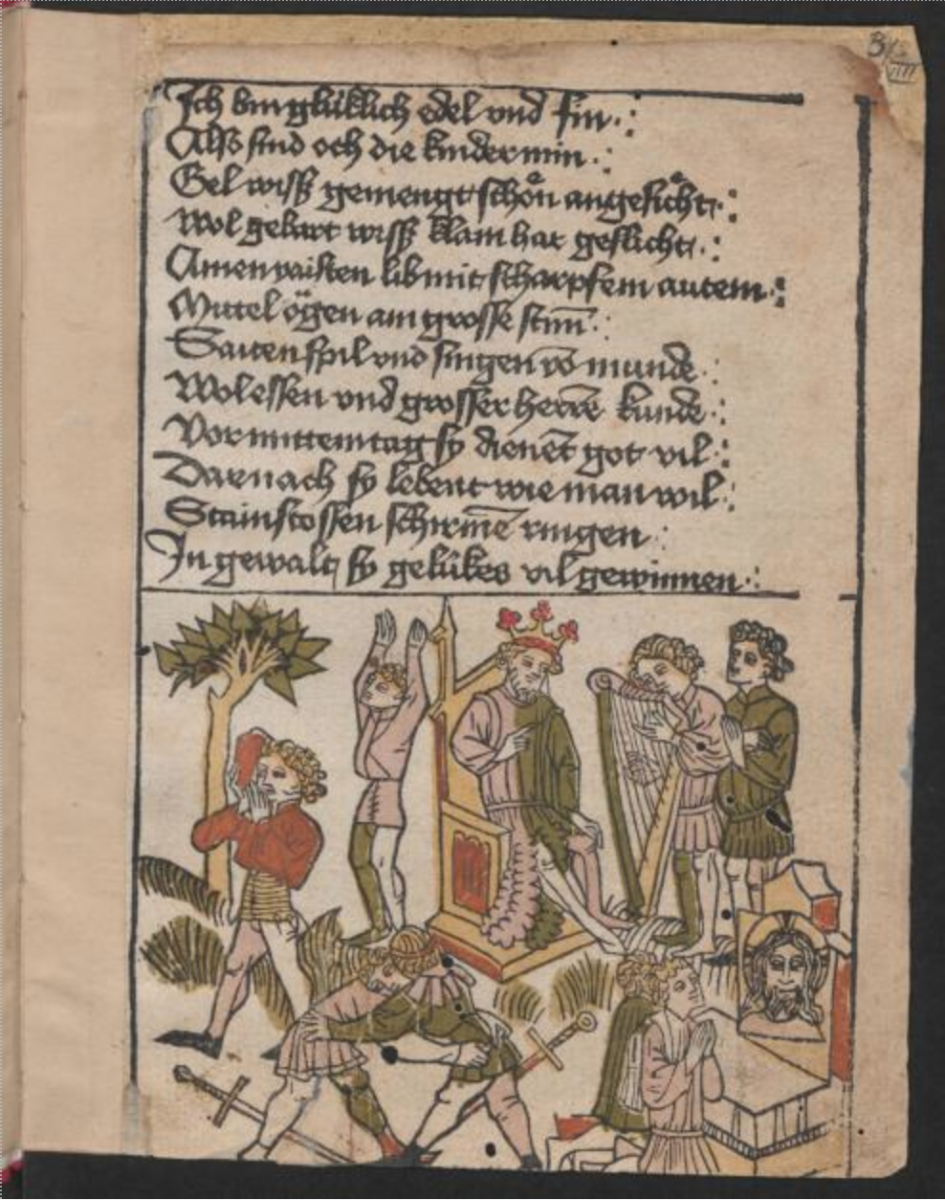 Ich bin glüklich edel vnd fin
Alß sind och die kinder min
Gel wiß gemengt schön angesicht
Wol gebart wiß klain har geslicht
Ainen vaisten lib mit scharpfem
Mittel ögen ain grosse stirn̄
Saitenspil vnd singen vō munde
Wol essen vnd grosser herrē kunde
Vor mittemtag sy dienēt got vil
Darnach sy lebent wie man wil
Stainstossen schirmē ringen
In gewalt sy gelükes vil gewinnen